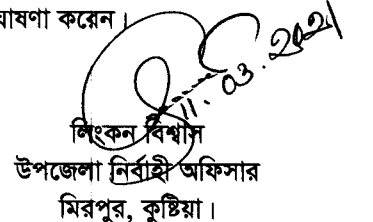 ঘোষণা করেন।
11.03.2021
লিংকন বিশ্বাস
উপজেলা নির্বাহী অফিসার
মিরপুর, কুষ্টিয়া।